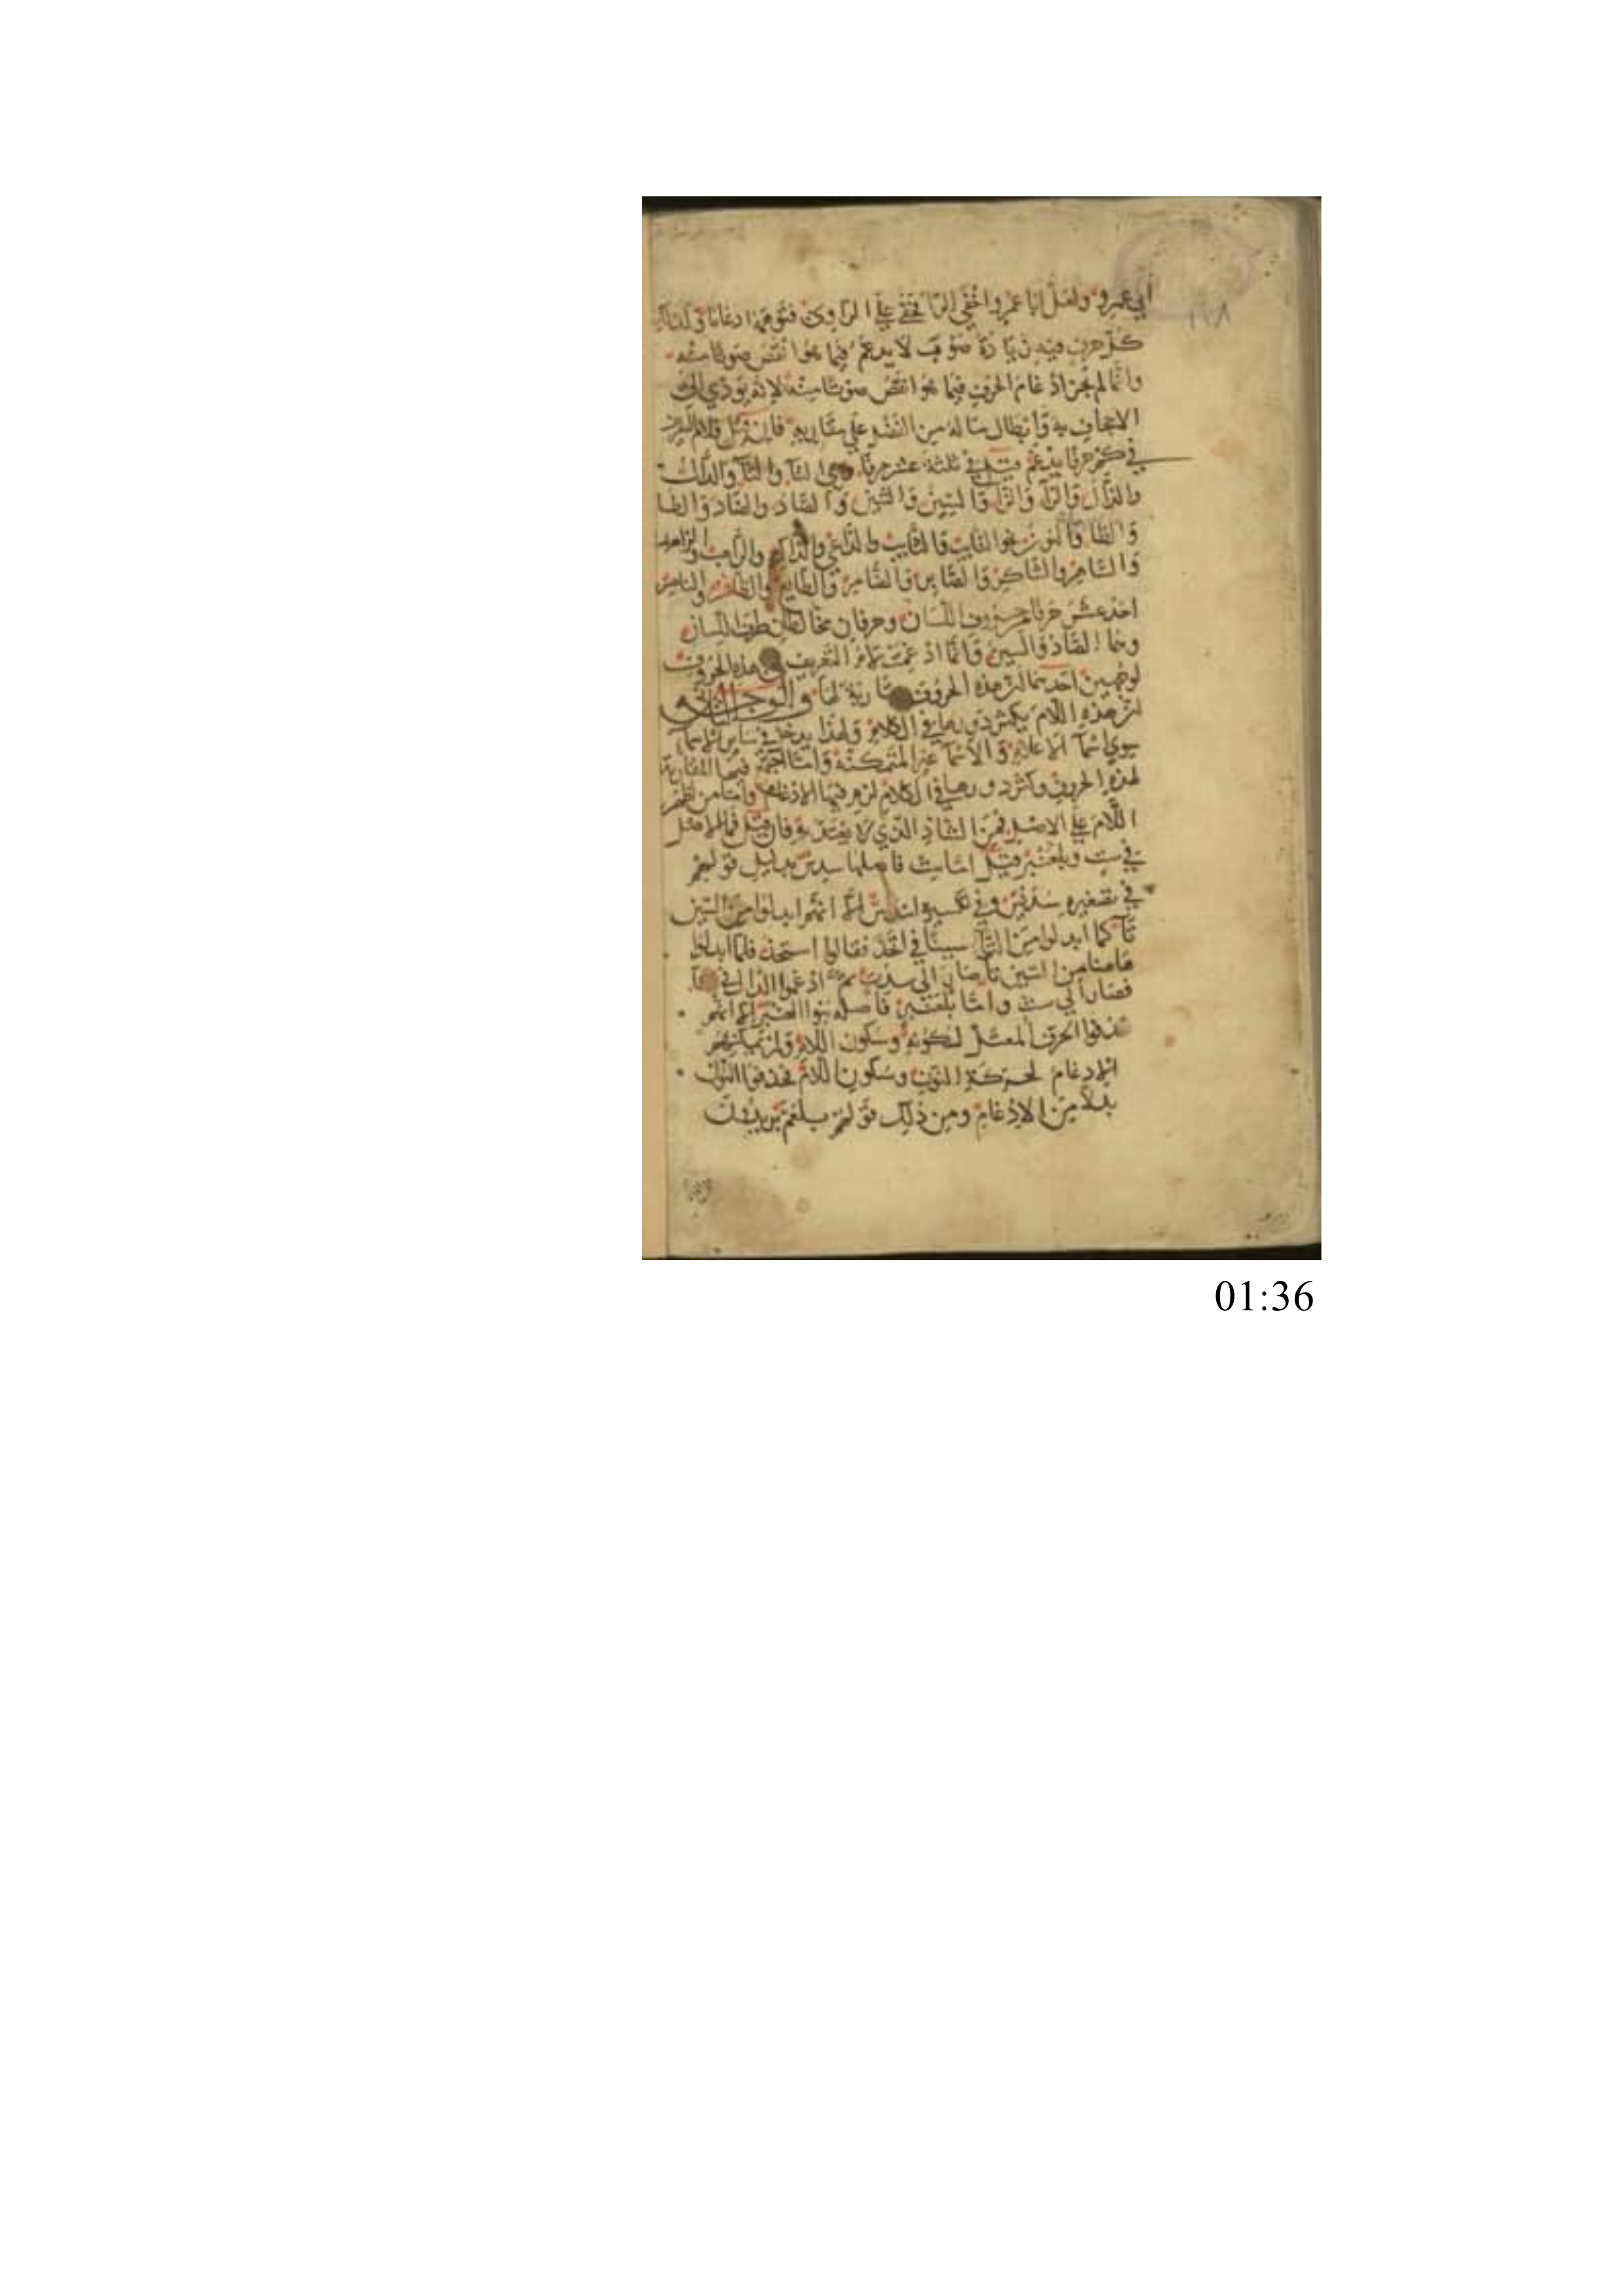 أبي عمرو ولعل أبا عمرو أخفى الراء فخفي على الراوي فتوهمه إدغاما وكذلك
كل حرف فيه زيادة صوت لا يدغم فيما هو أنقص صوتا منه
وانما لم يجز ادغام الحرف فيما هو انقص صوتا منه لانه يؤدي الى
الاجحاف به وابطال ما له من الفضل على مقاربه فان قيل فلام التعريف
في كم حرفا يدغم قيل في ثلثة عشر حرفا وهي التا والثا والدال
والذال والرا والزا والسين والشين والصاد والضاد والطا
والظا والنون نحو التايب والثابت والداعي والذاكر والراهب والزاهد
والساهر والشاكر والصابر والضامر والطايع والظافر والناصر
احد عشر حرفا من حروف اللسان وحرفان يخالطان طرف اللسان
وهما الضاد والشين وانما ادغمت لام التعريف في هذه الحروف
لوجهين احدهما ان هذه الحروف مقاربة لها والوجه الثاني
ان هذه اللام يكثر دورها في الكلام ولهذا يدخل في ساير الاسما
سوى اسما الاعلام والاسما غير المتمكنة ولما اجتمع فيها المقاربة
لهذه الحروف وكثر دورها في الكلام لزم فيها الادغام واما من اظهر
اللام على الاصل فمن الشاذ الذي لا يعتد به فان قيل فما الاصل
في ست وبلعنبر قيل اما ست فاصلها سدس بدليل قولهم
في تصغيره سديس وفي تكسيره اسداس الا انهم ابدلوا من السين
تا كما ابدلوا من التا سينا في اتخذ فقالوا استخذ فلما ابدلوا
هاهنا من السين تا صار الى سدت ثم ادغموا الدال في التا
فصار الى ست واما بلعنبر فاصله بنو العنبر الا انهم
حذفوا الحرف المعتل لسكونه وسكون اللام ولم يمكنهم
الادغام لحركة النون وسكون اللام فحذفوا النون
بدلا من الادغام ومن ذلك قولهم بلعم يريدون